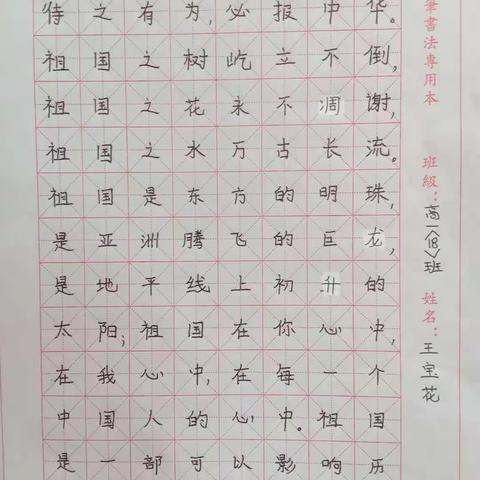 待之有为,必报中华。
祖国之树屹立不倒,
祖国之花永不凋谢,
祖国之水万古长流。
祖国是东方的明珠,
是亚洲腾飞的巨龙,
是地平线上初升的
太阳;祖国在你心中,
在我心中,在每一个
中国人的心中。祖国
是一部可以影响历
筆書法專用本
班級:高一(18)班
姓名:王宝花